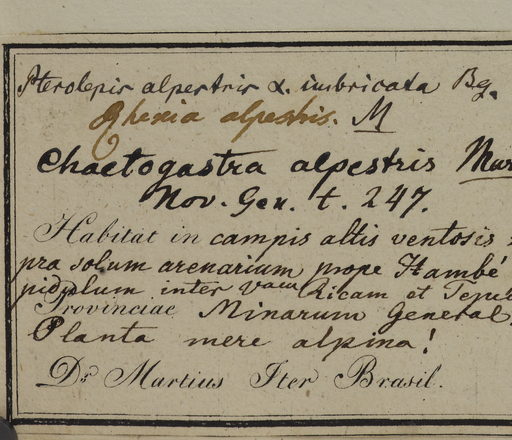 Pterolepis alpestris α. imbricata Bg.
Rhexia alpestris. M
Chaetogastra alpestris Mar
Nov. Gen. t. 247.
Habitat in campis altis ventosis
pra solum arenarium prope Itambé
pidulum inter Vam Ricam et Tepu
Provinciae Minarum General
Planta mere alpina!
Dr Martius Iter Brasil.